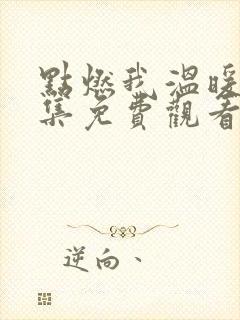 點燃我溫暖
集免費觀看
逆向、